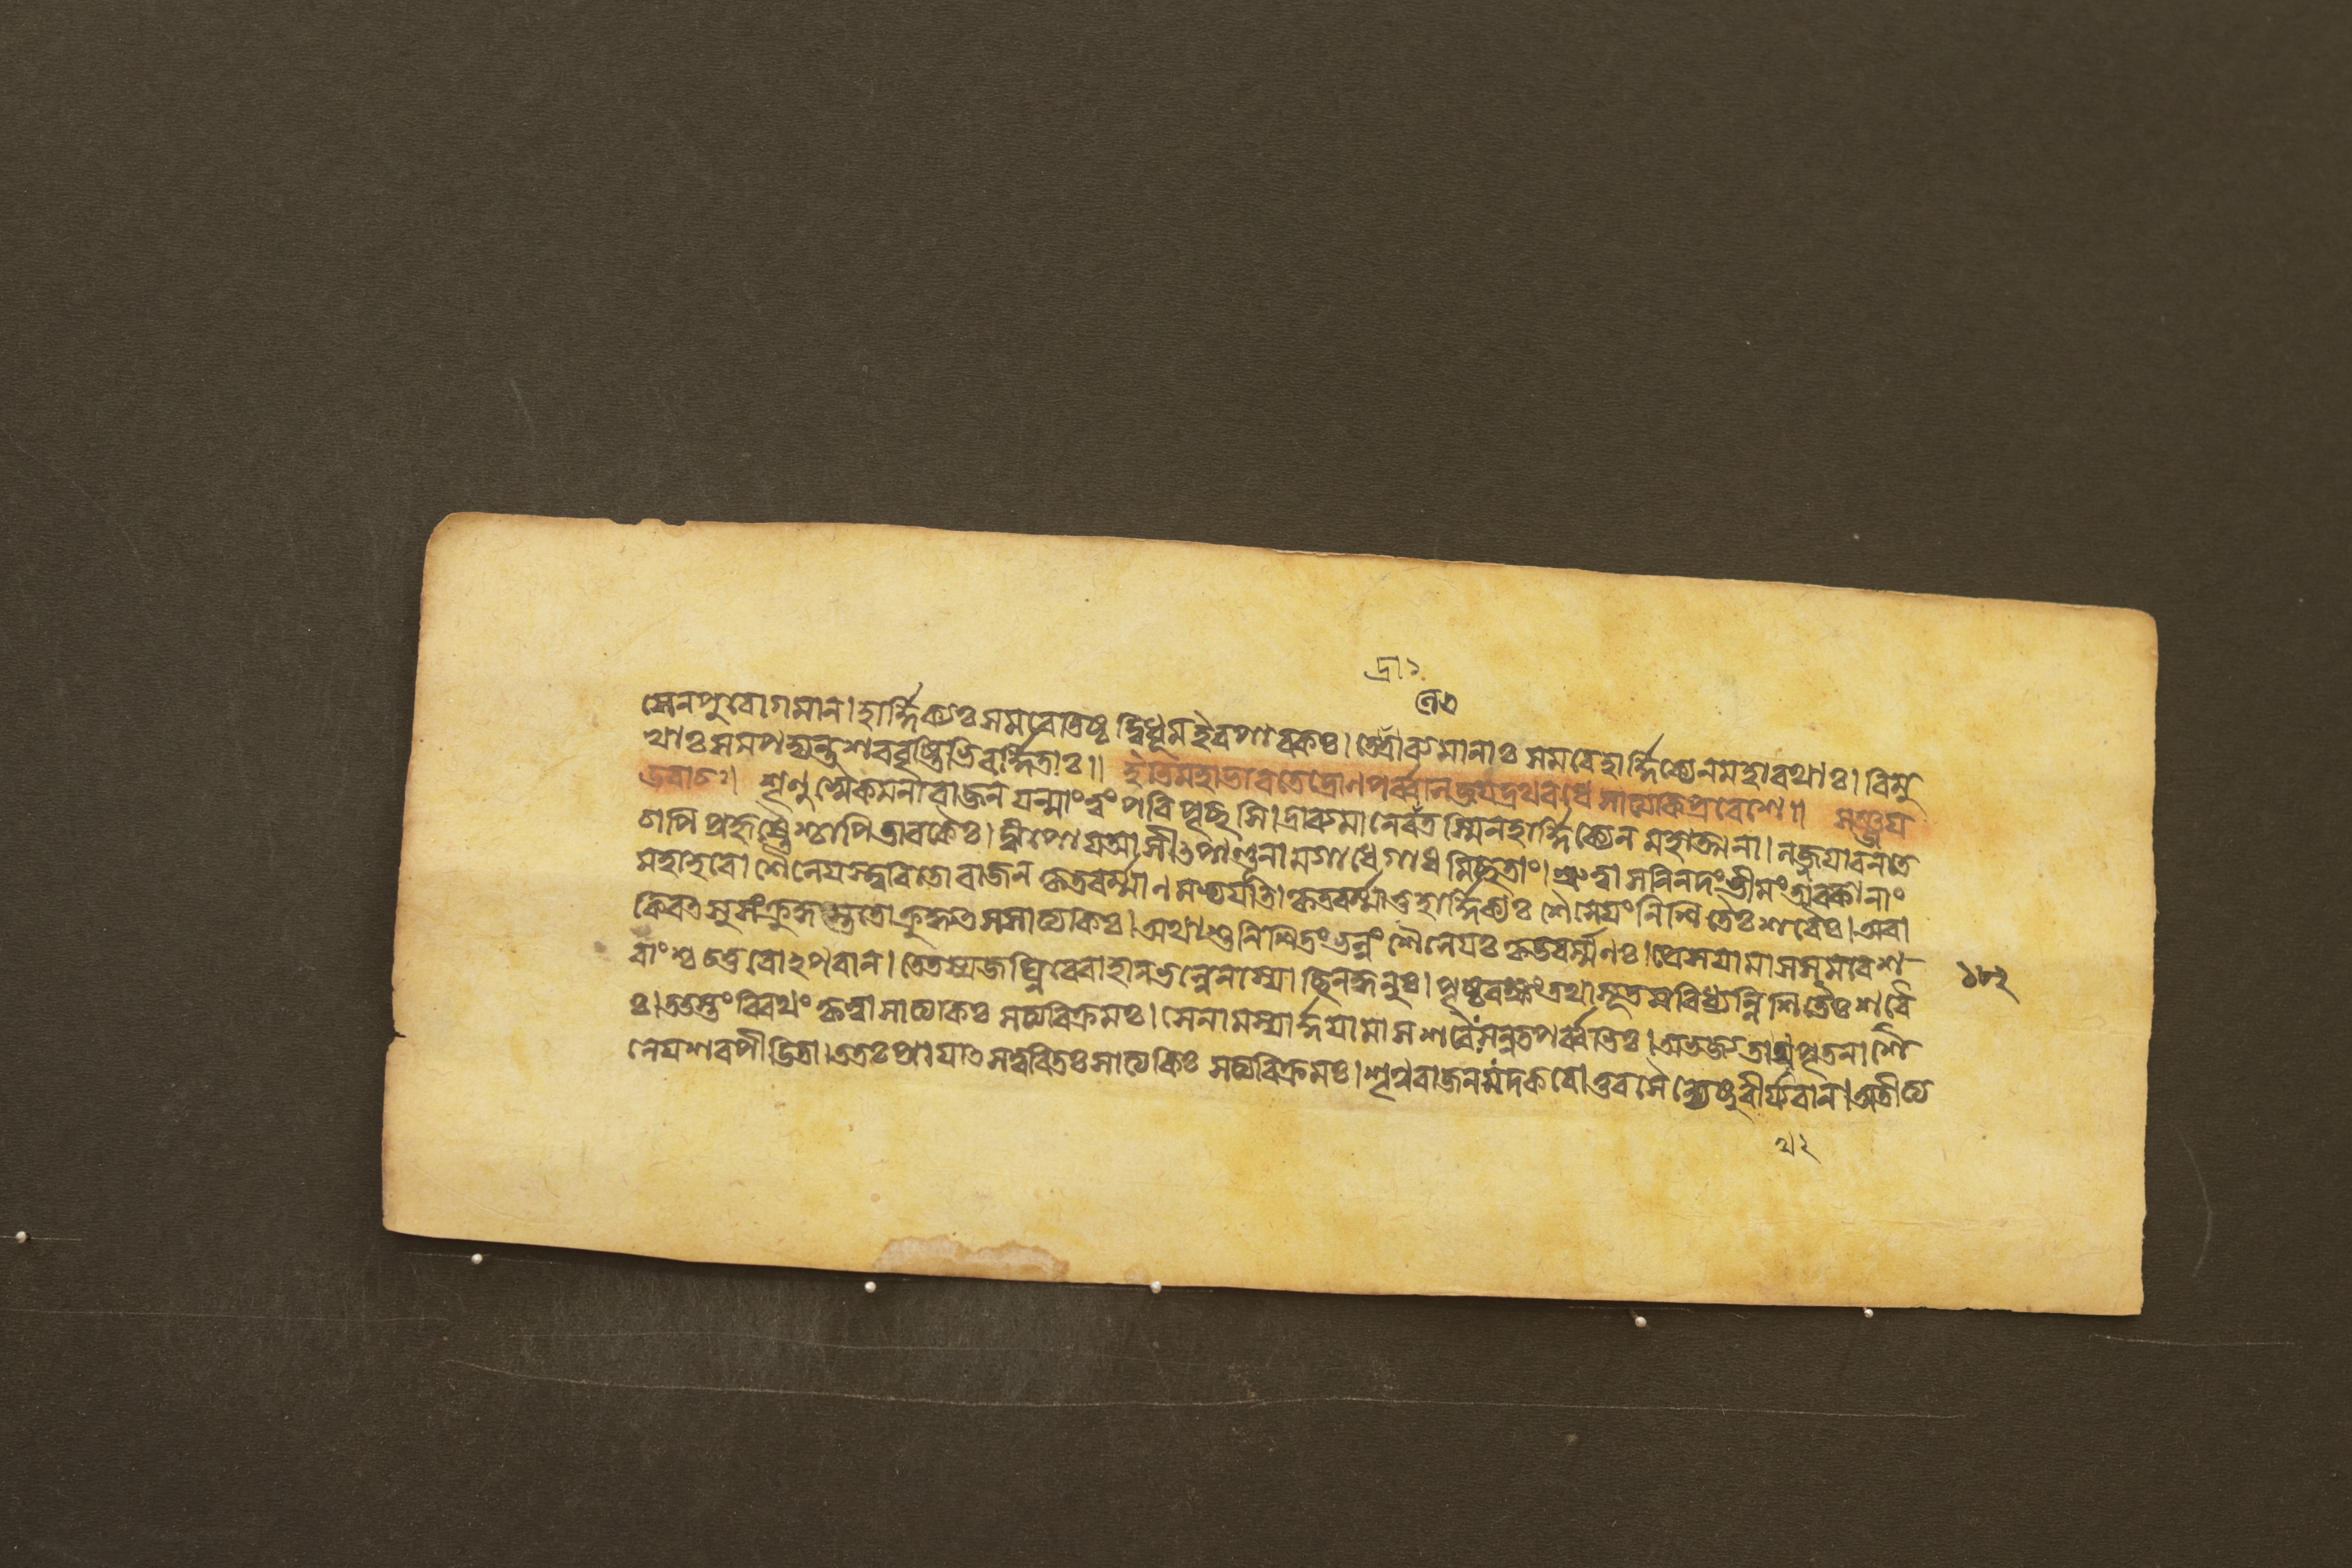 সেনপুরোগমান। হার্দ্দিক্যঃ সমরেতিষ্ঠদ্বিধূমইবপাবকঃ। তেদ্রাব্যমানাঃ সমরেহার্দ্দিক্যেনমহারথাঃ। বিমু
খাঃ সমপদ্যন্তশরবৃষ্টিভিরর্দ্দিতাঃ॥ ইতিমহাভারতেদ্রোণপর্ব্বনিজয়দ্রথবধে সাত্যকিপ্রবেশে॥ সঞ্জয়
উবাচঃ। শৃণুষ্বৈকমনারাজন যন্মাংত্বং পরিপৃচ্ছসি। দ্রাব্যমানেবলেতস্মিনহার্দ্দিক্যেন মহাত্মনা। লজ্জয়াবনতে
চাপি প্রহৃষ্টৈশ্চাপিতাবকৈঃ। দ্বীপোযআসীৎপাণ্ডূনামগাধেগাধমিচ্ছতাং। শ্রুত্বাসনিনদংভীমংতাবকানাং
মহাহবে। শৈনেয়স্ত্বরিতোরাজন কৃতবর্ম্মাণমভ্যয়াত। কৃতবর্ম্মাতুহার্দ্দিক্যঃ শৈনেয়ংনিশিতৈঃ শরৈঃ। অবা
কিরতসুসংক্রুদ্ধস্ততোক্রুধ্যতসসাত্যকিঃ। অথাশুনিশিতংভল্লং শৈনেয়ঃ কৃতবর্ম্মণঃ। প্রেসয়ামাসসমরেশ
রাংশ্চচতুরোঽপরান। তেতস্যজঘ্নিরেবাহানভল্লেনাস্যাচ্ছিনদ্ধনুঃ। পৃষ্ঠরক্ষংতথাসূতমবিধ্যন্নিশিতৈঃ শরৈ
ঃ। ততস্তংবিরথংকৃত্বাসাত্যকিঃ সত্যবিক্রমঃ। সেনামস্যার্দ্দয়ামাসশরৈঃসন্নতপর্ব্বভিঃ। অভজ্যতাথপৃতনাশৈ
নেয়শরপীড়িতা। ততঃপ্রায়াৎসত্বরিতঃসাত্যকিঃ সত্যবিক্রমঃ। শৃণুরাজনযদকরোত্তবসৈন্যেষুবীর্য্যবান। অতীত্য
১৮২